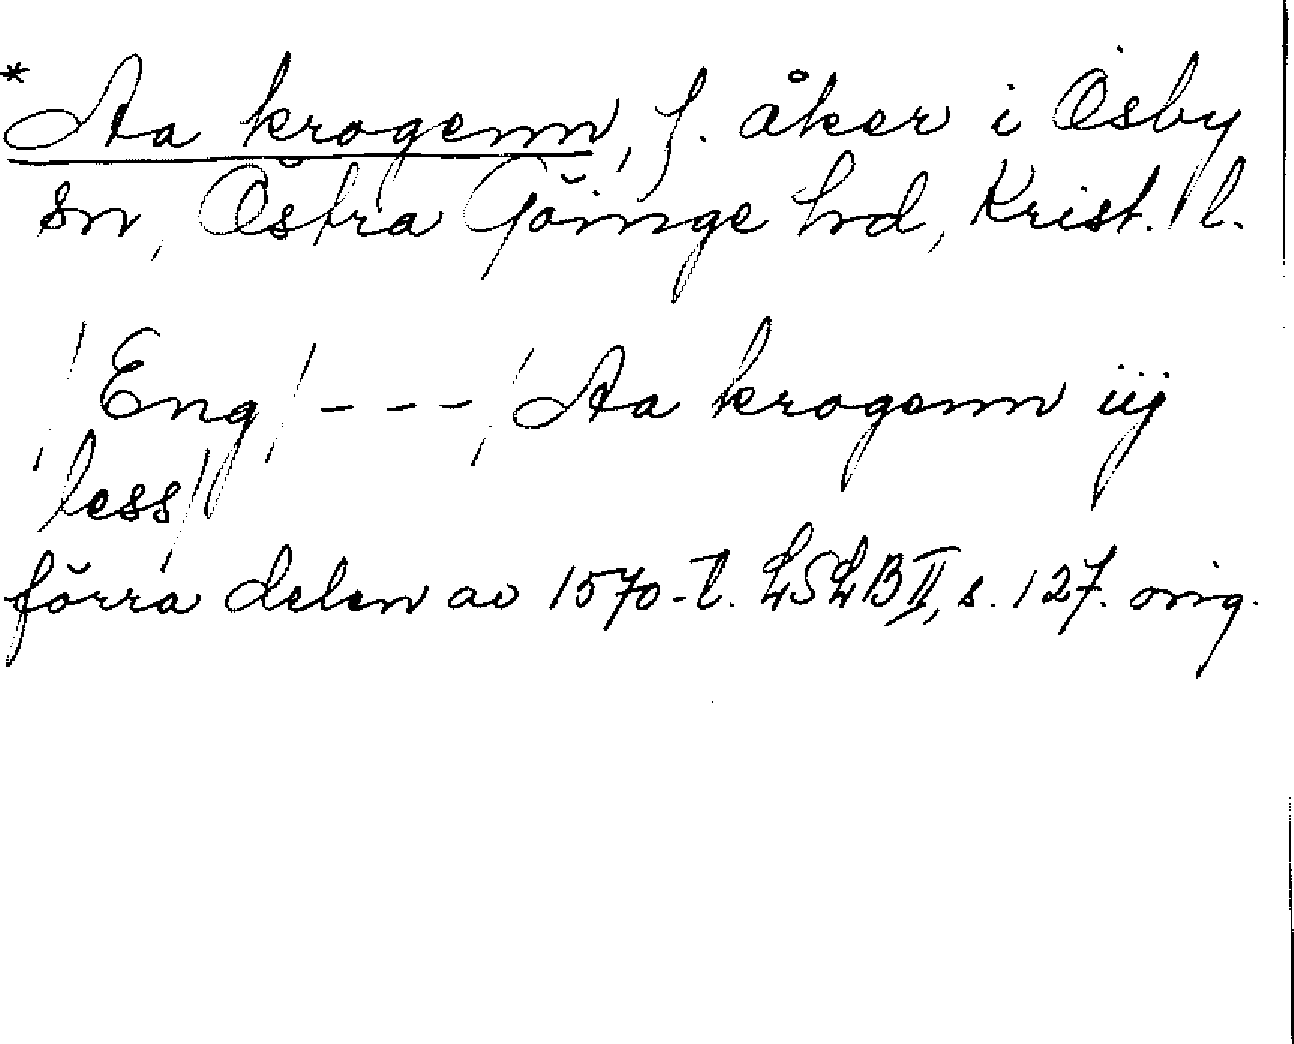 *Aa krogenn, f. åker i Osby
sn, Östra Göinge hd, Krist. l.
/Eng/ - - - /Aa krogenn iij
less/
förra delen av 1570-t. LSLB II, s. 127. orig.